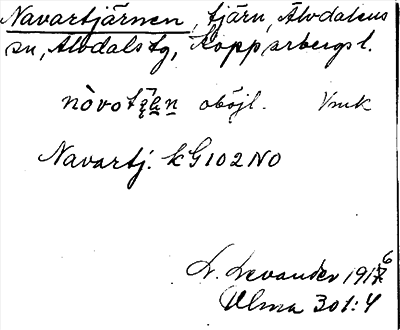 Navartjärnen, tjärn, Älvdalens
sn, Älvdalstg, Kopparbergs l.
nòvotę̄ḷṇ oböjl. Vmk
Navartj. kG102NO
L. Levander 1916
Ulma 301:4